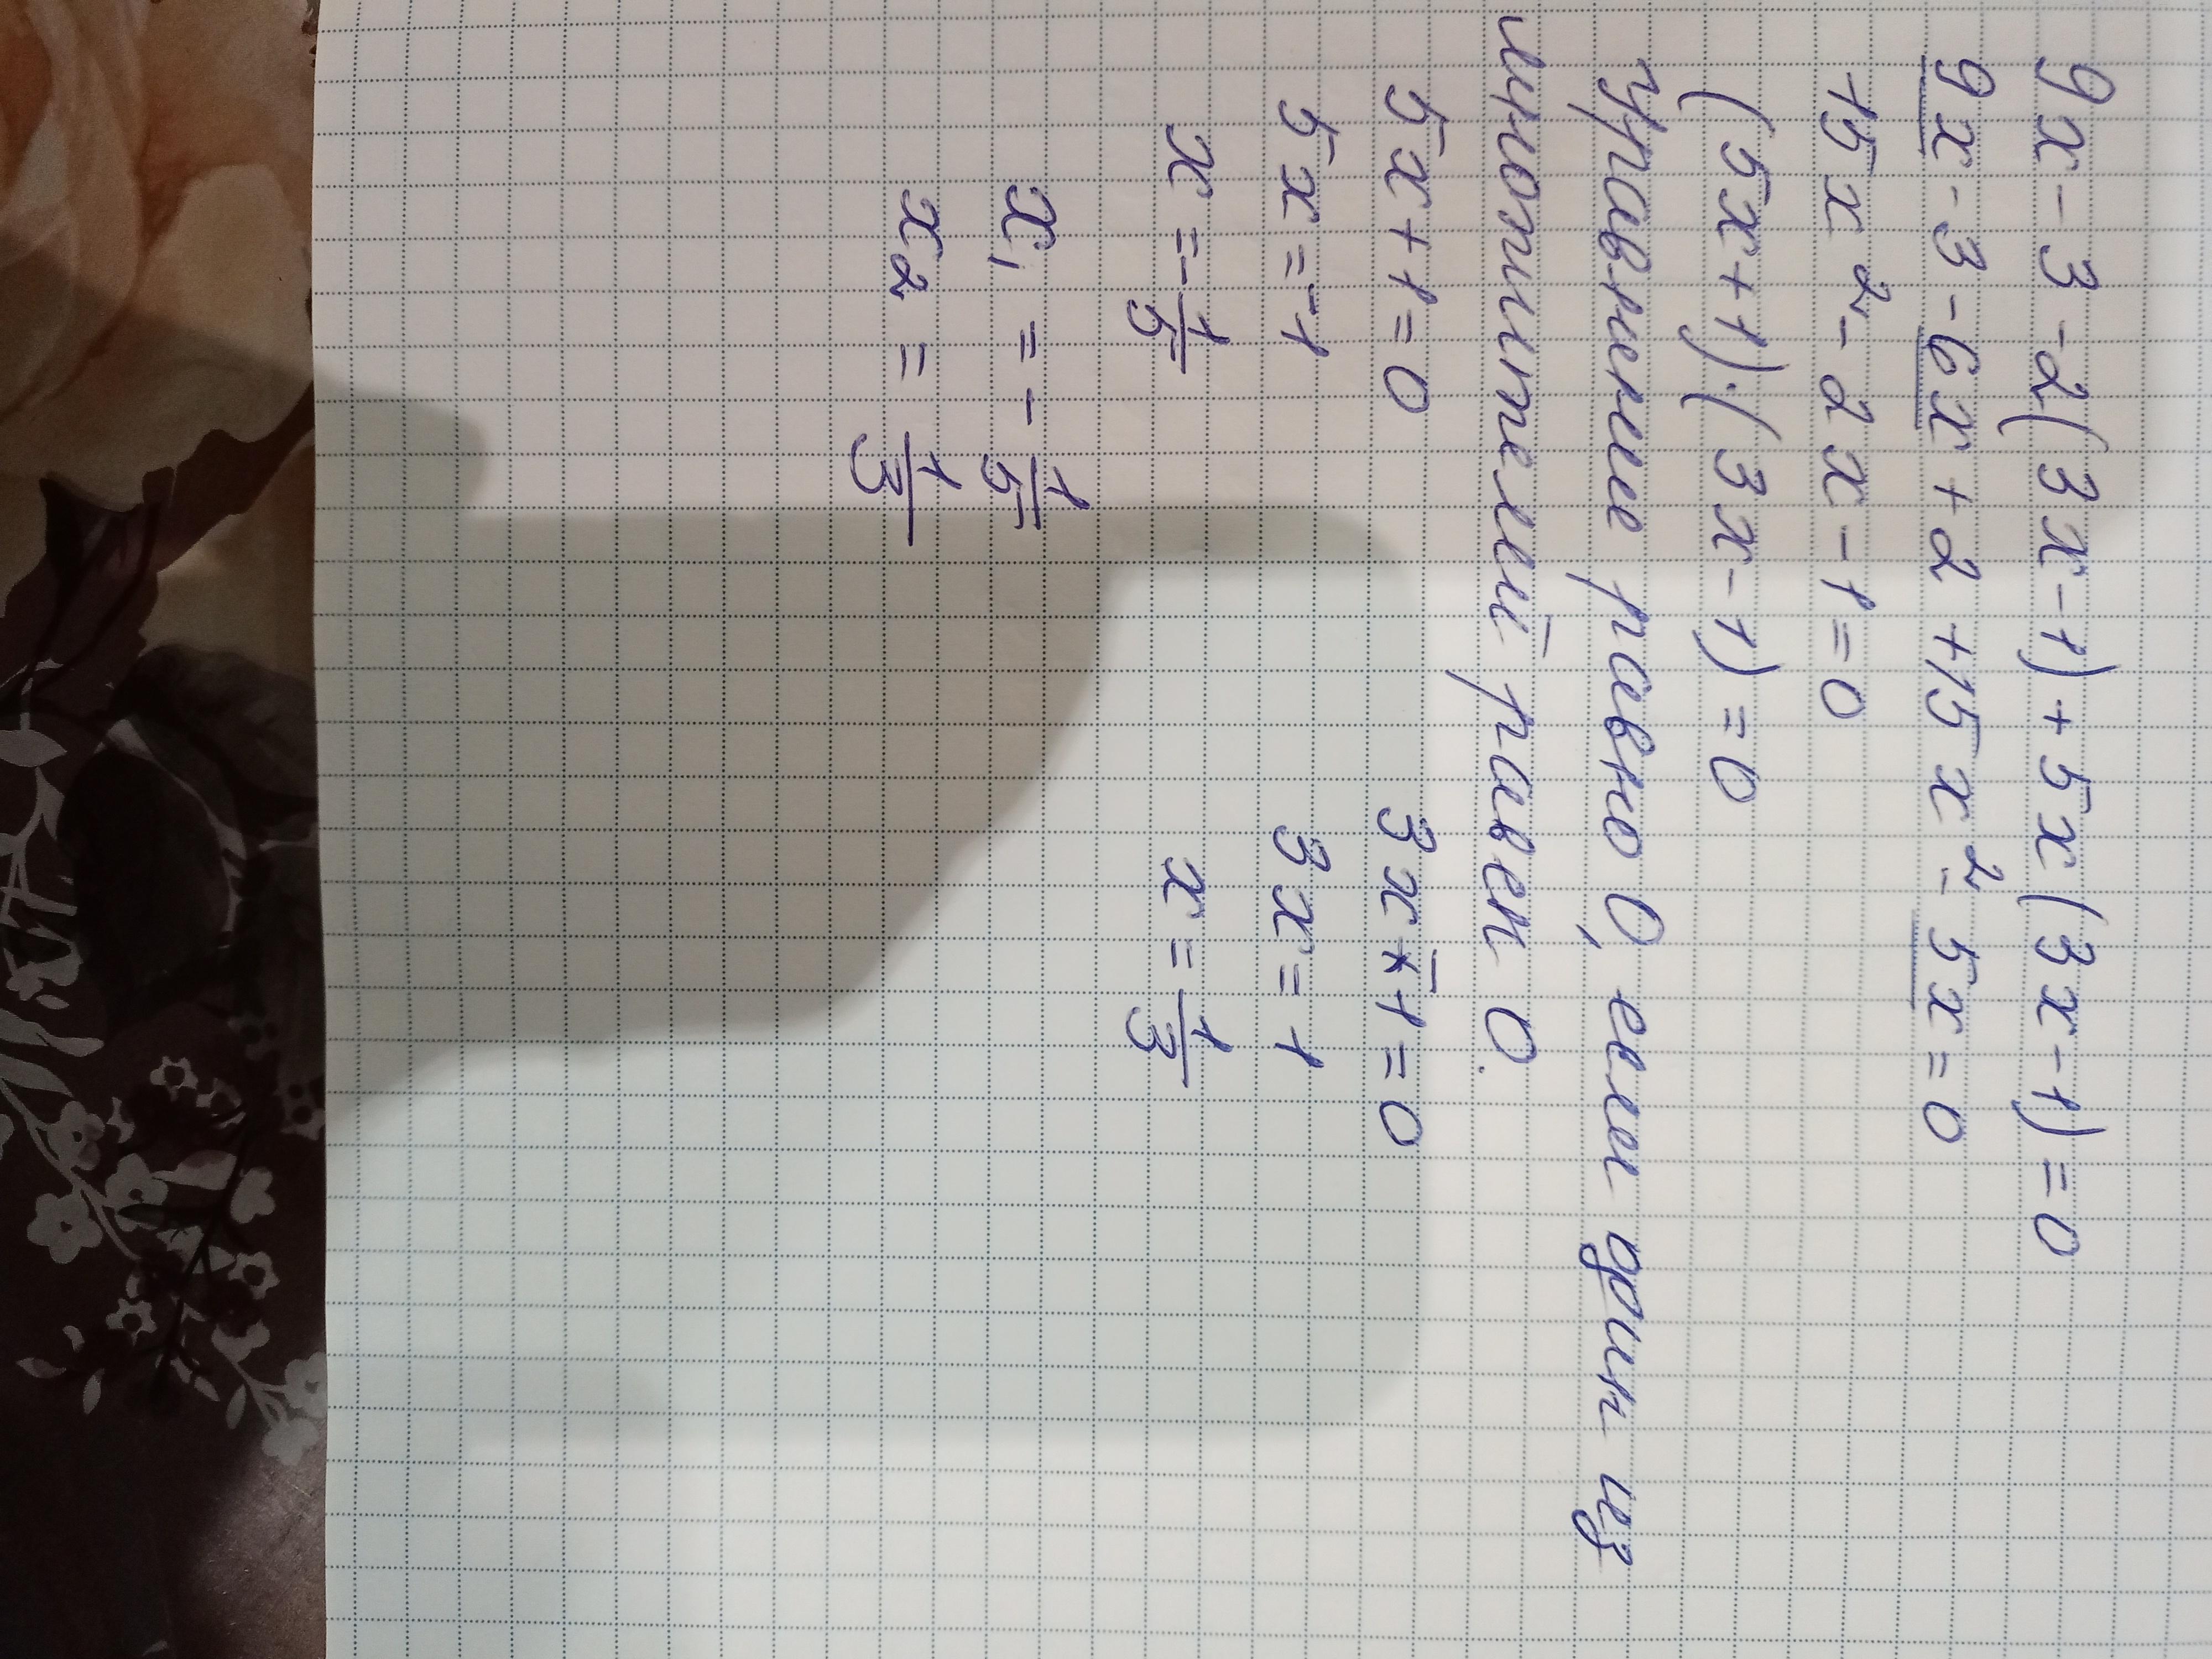 9x - 3 - 2(3x - 1) + 5x(3x - 1) = 0
9x - 3 - 6x + 2 + 15x² - 5x = 0
15x² - 2x - 1 = 0
(5x + 1)·(3x - 1) = 0
Уравнение равно 0, если один из
множителей равен 0.
5x + 1 = 0 3x - 1 = 0
5x = -1 3x = 1
x = -1/5 x = 1/3
x₁ = -1/5
x₂ = 1/3